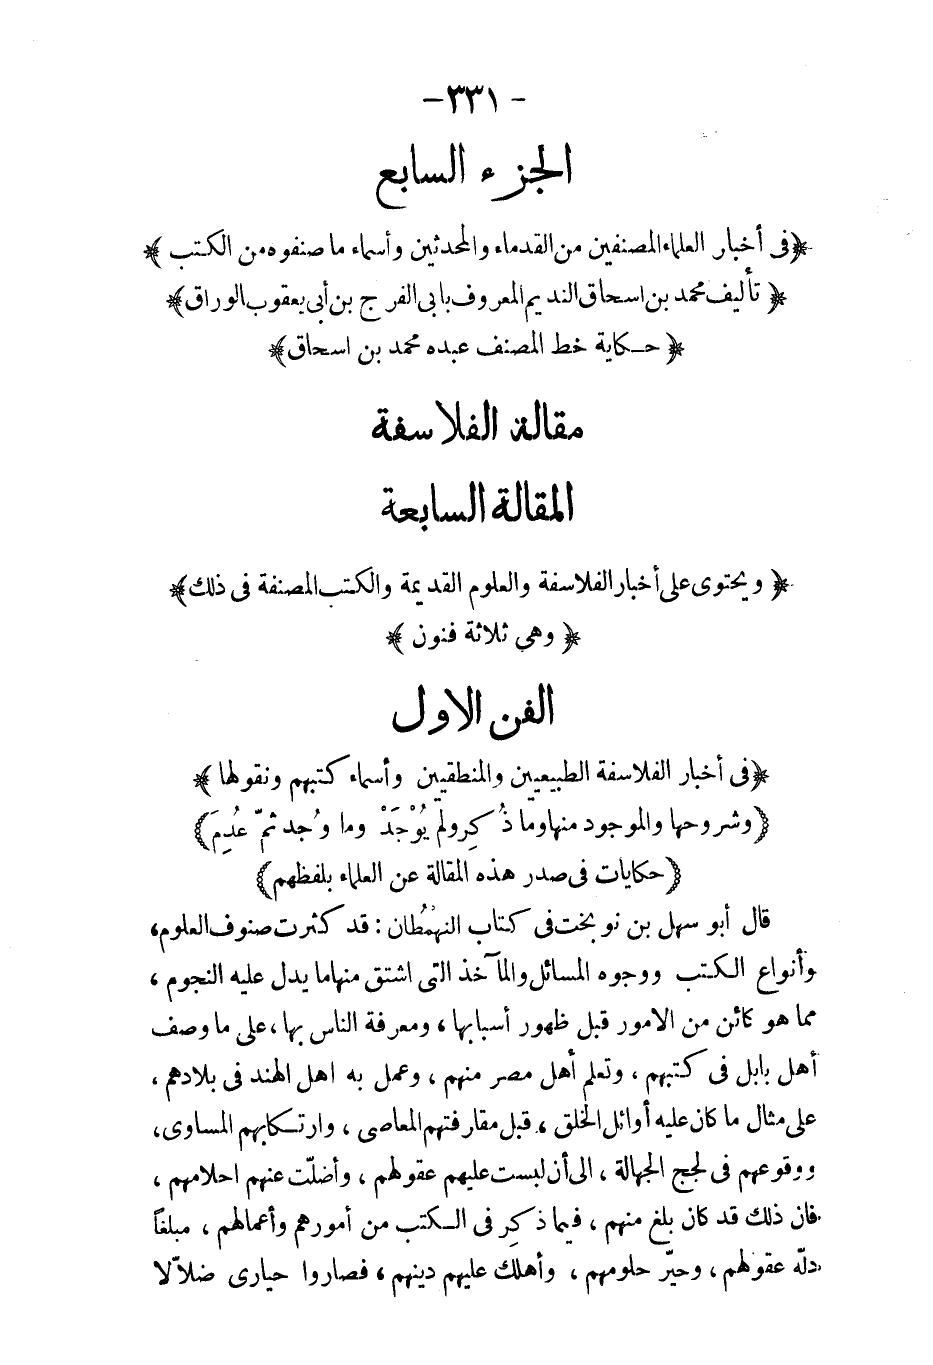 - ٣٣١ -
الجزء السابع
﴿ فى أخبار العلماء المصنفين من القدماء والمحدثين وأسماء ما صنفوه من الكتب ﴾
﴿ تأليف محمد بن اسحاق النديم المعروف بابى الفرج بن أبى يعقوب الوراق ﴾
﴿ حكاية خط المصنف عبده محمد بن اسحاق ﴾
مقالة الفلاسفة
المقالة السابعة
﴿ ويحتوى على أخبار الفلاسفة والعلوم القديمة والكتب المصنفة فى ذلك ﴾
﴿ وهي ثلاثة فنون ﴾
الفن الاول
﴿ فى أخبار الفلاسفة الطبيعيين والمنطقيين وأسماء كتبهم ونقولها ﴾
﴿ وشروحها والموجود منها وما ذُكِر ولم يُوْجَدْ وما وُجد ثمّ عُدِمَ ﴾
﴿ حكايات فى صدر هذه المقالة عن العلماء بلفظهم ﴾
قال أبو سهل بن نوبخت فى كتاب النهمُطان : قد كثرت صنوف العلوم،
وأنواع الكتب ووجوه المسائل والمآخذ التى اشتق منها ما يدل عليه النجوم ،
مما هو كائن من الامور قبل ظهور أسبابها ، ومعرفة الناس بها ، على ما وصف
أهل بابل فى كتبهم ، وتعلم أهل مصر منهم ، وعمل به اهل الهند فى بلادهم ،
على مثال ما كان عليه أوائل الخلق ، قبل مقارفتهم المعاصى ، وارتكابهم المساوى،
ووقوعهم فى لجج الجهالة ، الى أن لبست عليهم عقولهم ، وأضلّت عنهم احلامهم ،
فان ذلك قد كان بلغ منهم ، فيما ذكِر فى الكتب من أمورهم وأعمالهم ، مبلغاً
دلّه عقولهم ، وحيّر حلومهم ، وأهلك عليهم دينهم ، فصاروا حيارى ضلاّلا